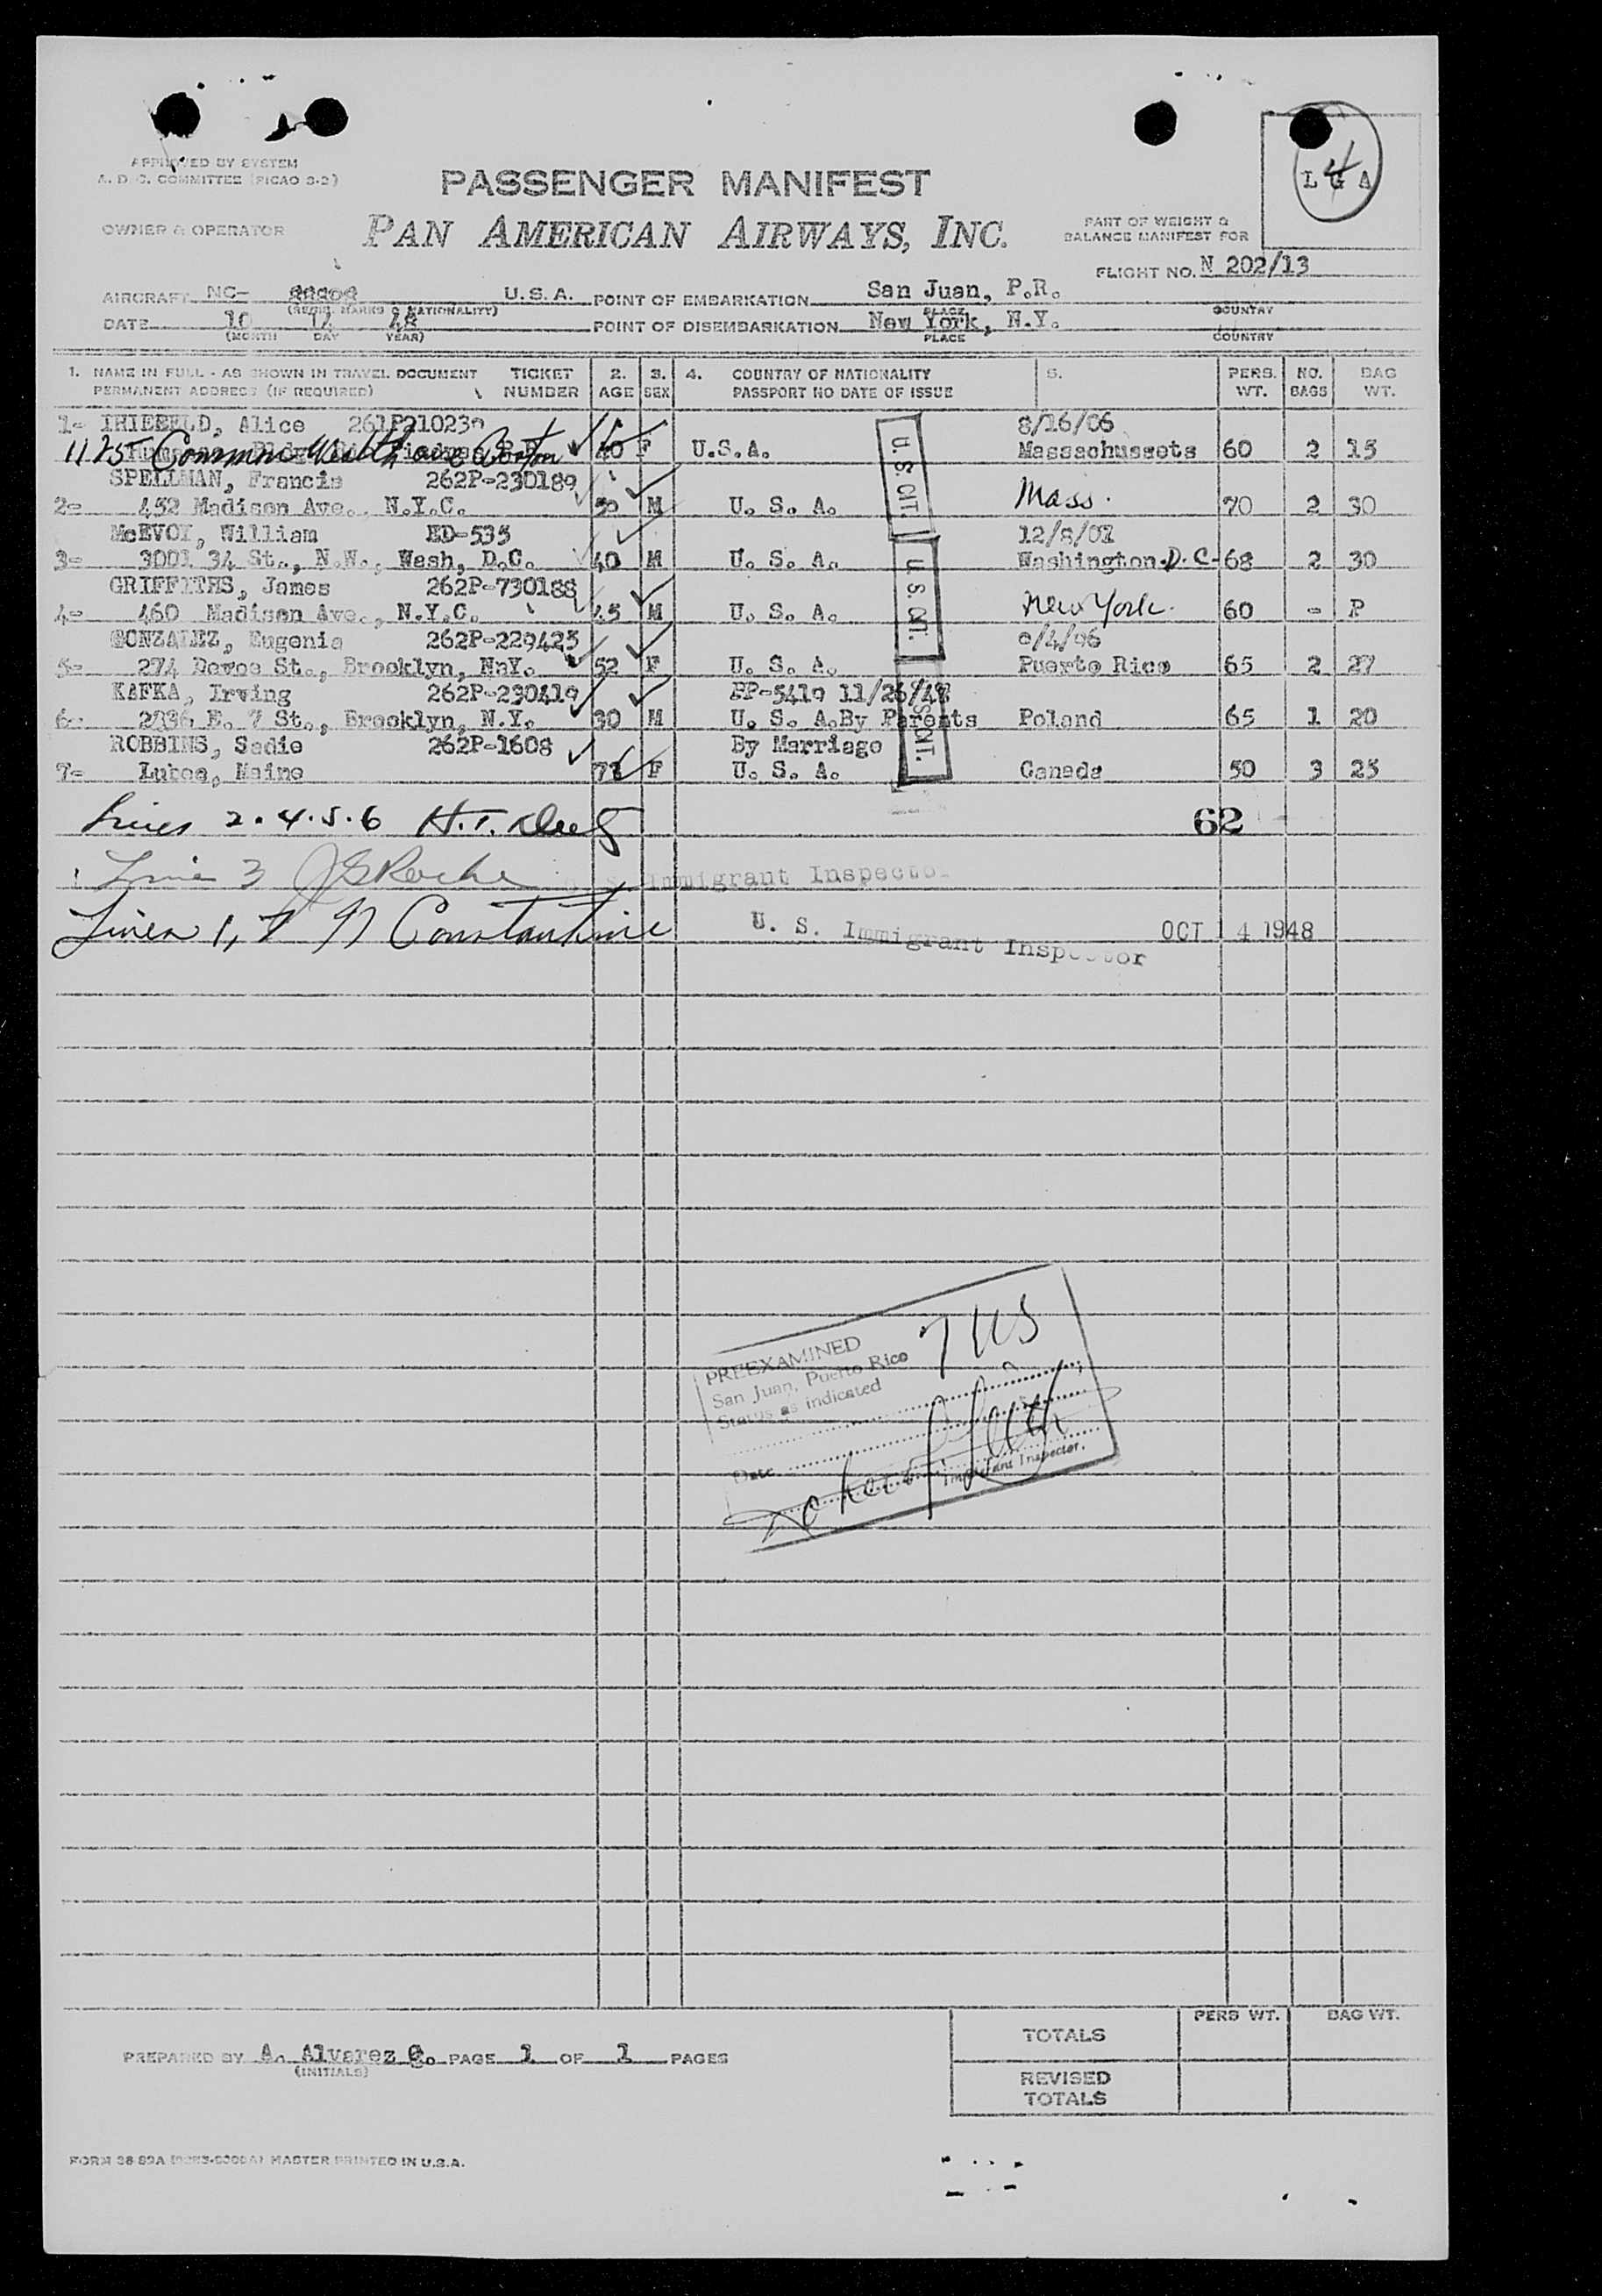 APPROVED BY SYSTEM
A. D. C. COMMITTEE (PICAO 3-2)
L G A
4
PASSENGER MANIFEST
OWNER & OPERATOR
PAN AMERICAN AIRWAYS, INC.
PART OF WEIGHT &
BALANCE MANIFEST FOR
FLIGHT NO. N 202/13
AIRCRAFT NC- U.S.A. POINT OF EMBARKATION San Juan, P.R.
(REGIS. MARKS & NATIONALITY) PLACE COUNTRY
DATE 10 14 48 POINT OF DISEMBARKATION New York, N.Y.
(MONTH DAY YEAR) PLACE COUNTRY
1. NAME IN FULL - AS SHOWN IN TRAVEL DOCUMENT TICKET 2. 3. 4. COUNTRY OF NATIONALITY 5. PERS. NO. BAG
PERMANENT ADDRESS (IF REQUIRED) NUMBER AGE SEX PASSPORT NO DATE OF ISSUE WT. BAGS WT.
1- Alice 8/16/06
1125 Commonwealth ave Boston 40 F U.S.A. Massachussets 60 2 15
SPELLMAN, Francis 262P-230189
2- 452 Madison Ave., N.Y.C. 50 M U. S. A. Mass. 70 2 30
McEVOY, William ED-535 12/8/07
3- 3001 34 St., N.W., Wash, D.C. 40 M U. S. A. Washington.D.C- 68 2 30
GRIFFITHS, James 262P-730188
4- 460 Madison Ave., N.Y.C. 45 M U. S. A. New York. 60 - P
GONZALEZ, Eugenia 262P-229425
5- 274 Devoe St., Brooklyn, N.Y. 52 F U. S. A. Puerto Rico 65 2 27
KAFKA, Irving 262P-230419 PP-5419 11/26/48
6- E. 7 St., Brooklyn, N.Y. 30 M U. S. A. By Parents Poland 65 1 20
ROBBINS, Sadie 262P-1608 By Marriage
7- Lubec, Maine 72 F U. S. A. Canada 50 3 25
U. S. CIT.
U. S. CIT.
U. S. CIT.
Lines 2. 4. 5. 6 H.T.
62
Line 3 JSRoche Immigrant Inspector
Lines 1, 7 N Constantine U. S. Immigrant Inspector OCT 14 1948
PREEXAMINED 7 US
San Juan, Puerto Rico
Status as indicated
Date
Immigrant Inspector.
PERS WT. BAG WT.
TOTALS
PREPARED BY A. Alvarez PAGE 1 OF 1 PAGES
(INITIALS)
REVISED
TOTALS
MASTER PRINTED IN U.S.A.